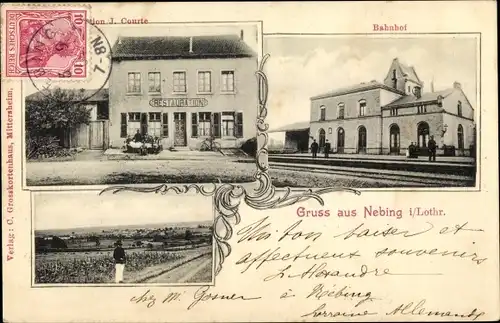 tion J. Courte
Bahnhof
DEUTSCHES REICH
10 10
RESTAURATION
Verlag: C. Grosskortenhaus, Mittersheim.
Gruss aus Nebing i/Lothr.
Mon baiser et
affectueux souvenirs
L. Alexandre
chez M. Gosner
à Nébing
Lorraine Allemande